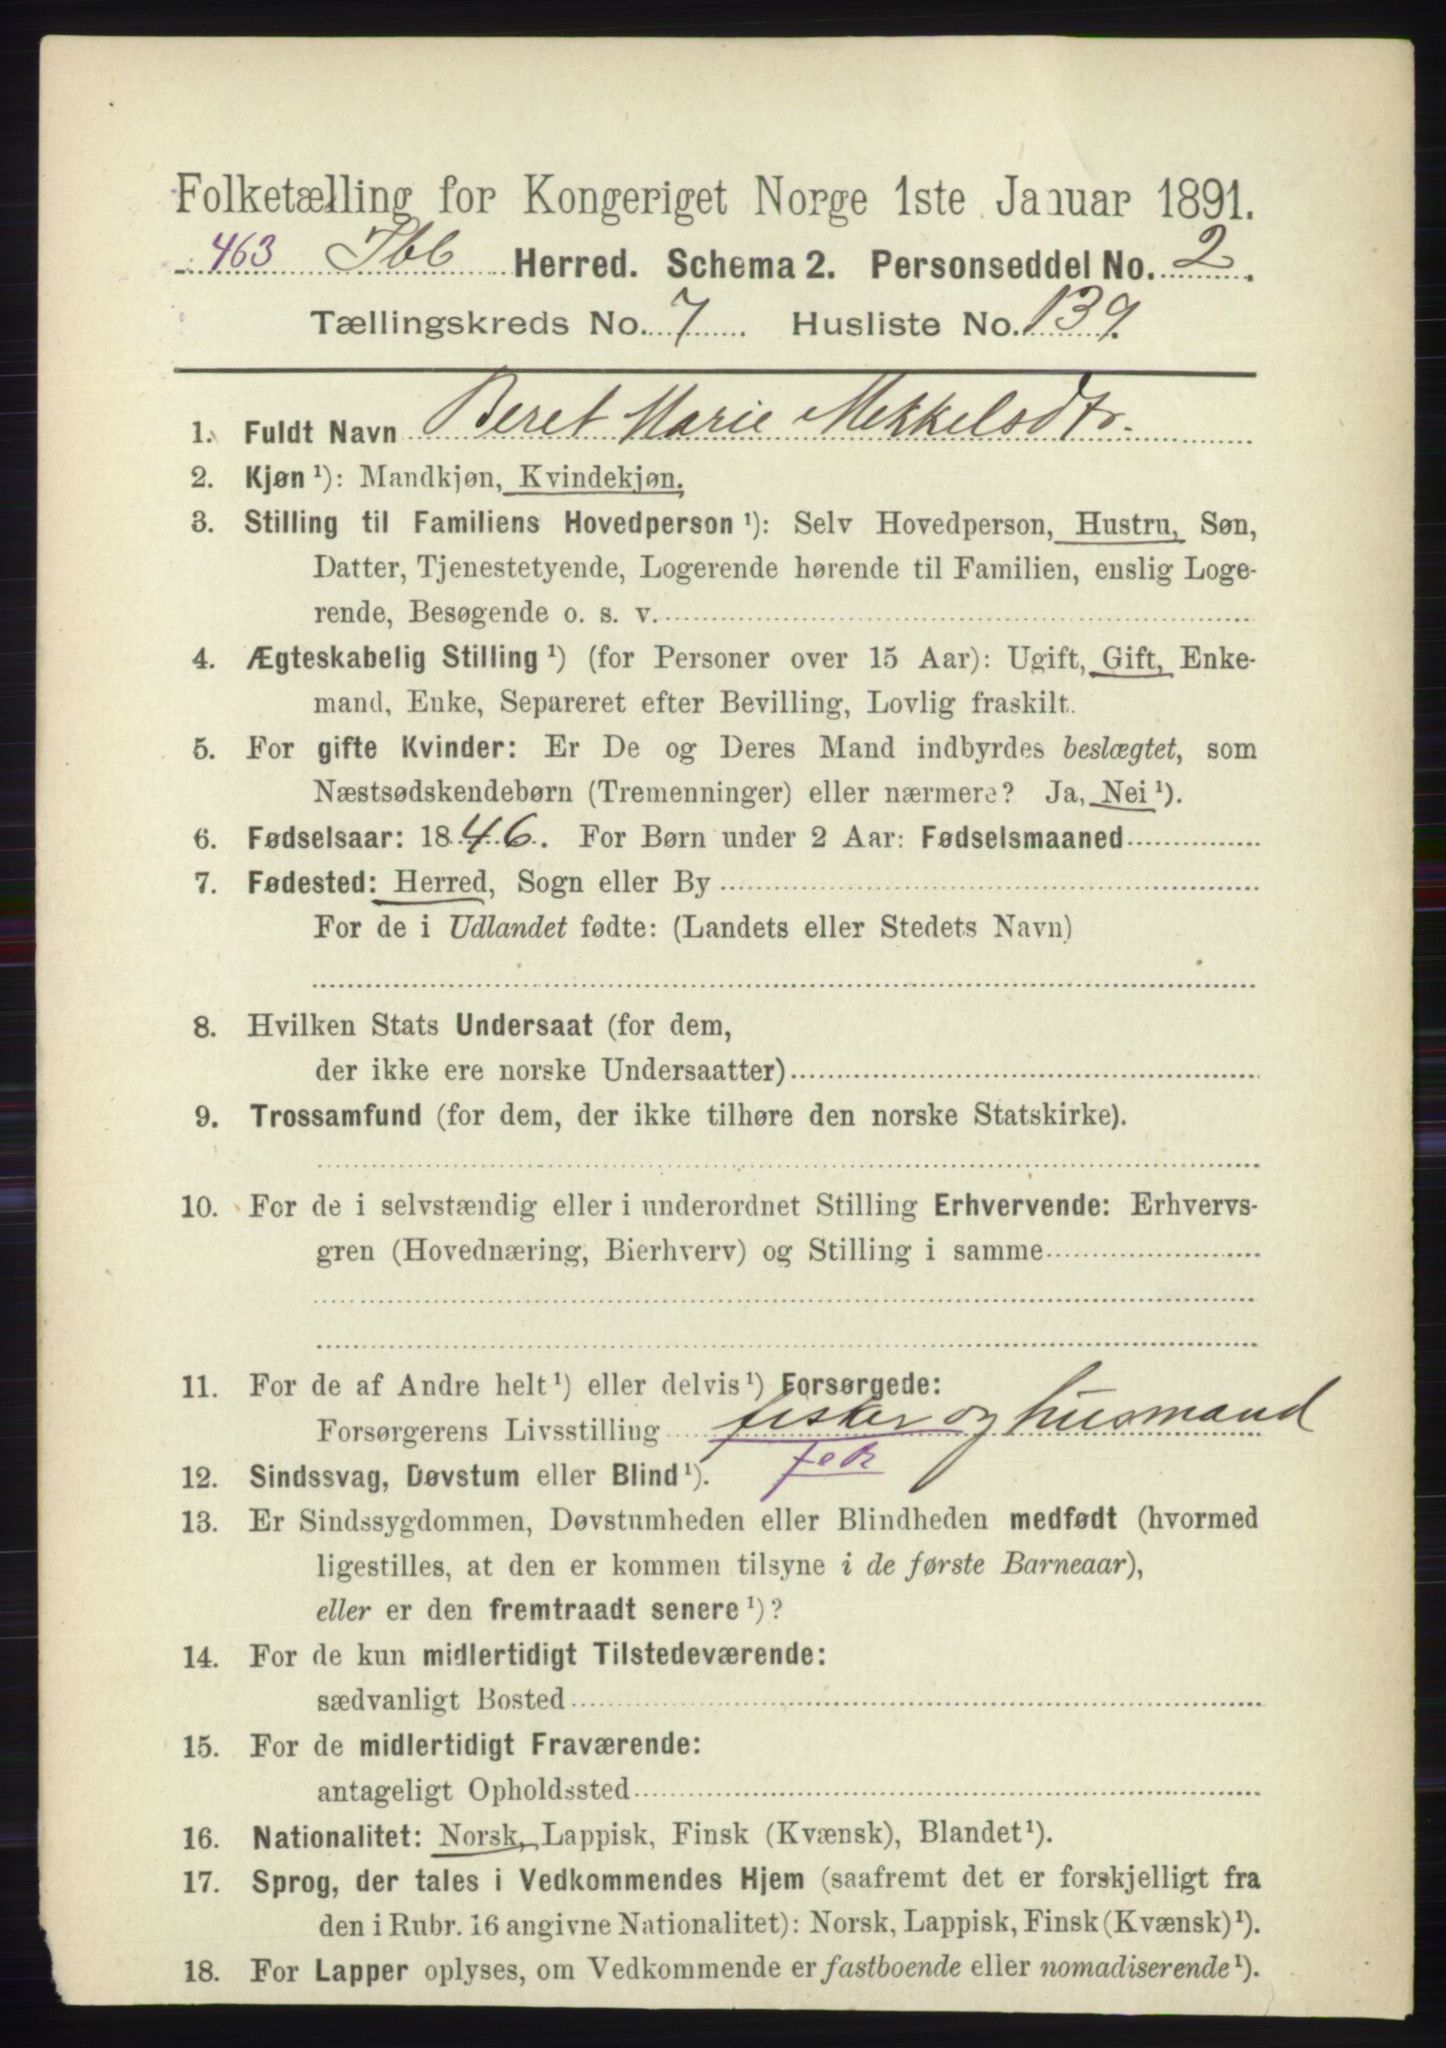 Folketælling for Kongeriget Norge 1ste Januar 1891.
463 Ibb Herred. Schema 2. Personseddel No. 2.
Tællingskreds No. 7 Husliste No. 139.
1. Fuldt Navn Beret Marie Mekkelsdtr.
2. Kjøn ¹): Mandkjøn, Kvindekjøn.
3. Stilling til Familiens Hovedperson ¹): Selv Hovedperson, Hustru, Søn,
Datter, Tjenestetyende, Logerende hørende til Familien, enslig Loge-
rende, Besøgende o. s. v.
4. Ægteskabelig Stilling ¹) (for Personer over 15 Aar): Ugift, Gift, Enke-
mand, Enke, Separeret efter Bevilling, Lovlig fraskilt.
5. For gifte Kvinder: Er De og Deres Mand indbyrdes beslægtet, som
Næstsødskendebørn (Tremenninger) eller nærmere? Ja, Nei ¹).
6. Fødselsaar: 1846. For Børn under 2 Aar: Fødselsmaaned
7. Fødested: Herred, Sogn eller By
For de i Udlandet fødte: (Landets eller Stedets Navn)
8. Hvilken Stats Undersaat (for dem,
der ikke ere norske Undersaatter)
9. Trossamfund (for dem, der ikke tilhøre den norske Statskirke).
10. For de i selvstændig eller i underordnet Stilling Erhvervende: Erhvervs-
gren (Hovednæring, Bierhverv) og Stilling i samme
11. For de af Andre helt ¹) eller delvis ¹) Forsørgede:
Forsørgerens Livsstilling fisker og husmand
12. Sindssvag, Døvstum eller Blind ¹).
13. Er Sindssygdommen, Døvstumheden eller Blindheden medfødt (hvormed
ligestilles, at den er kommen tilsyne i de første Barneaar),
eller er den fremtraadt senere ¹)?
14. For de kun midlertidigt Tilstedeværende:
sædvanligt Bosted
15. For de midlertidigt Fraværende:
antageligt Opholdssted
16. Nationalitet: Norsk, Lappisk, Finsk (Kvænsk), Blandet ¹).
17. Sprog, der tales i Vedkommendes Hjem (saafremt det er forskjelligt fra
den i Rubr. 16 angivne Nationalitet): Norsk, Lappisk, Finsk (Kvænsk) ¹).
18. For Lapper oplyses, om Vedkommende er fastboende eller nomadiserende ¹).